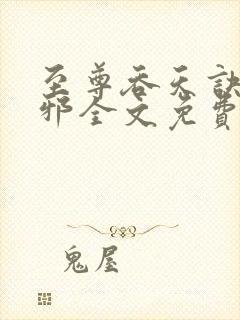 至尊吞天诀
邪全文免费
鬼屋